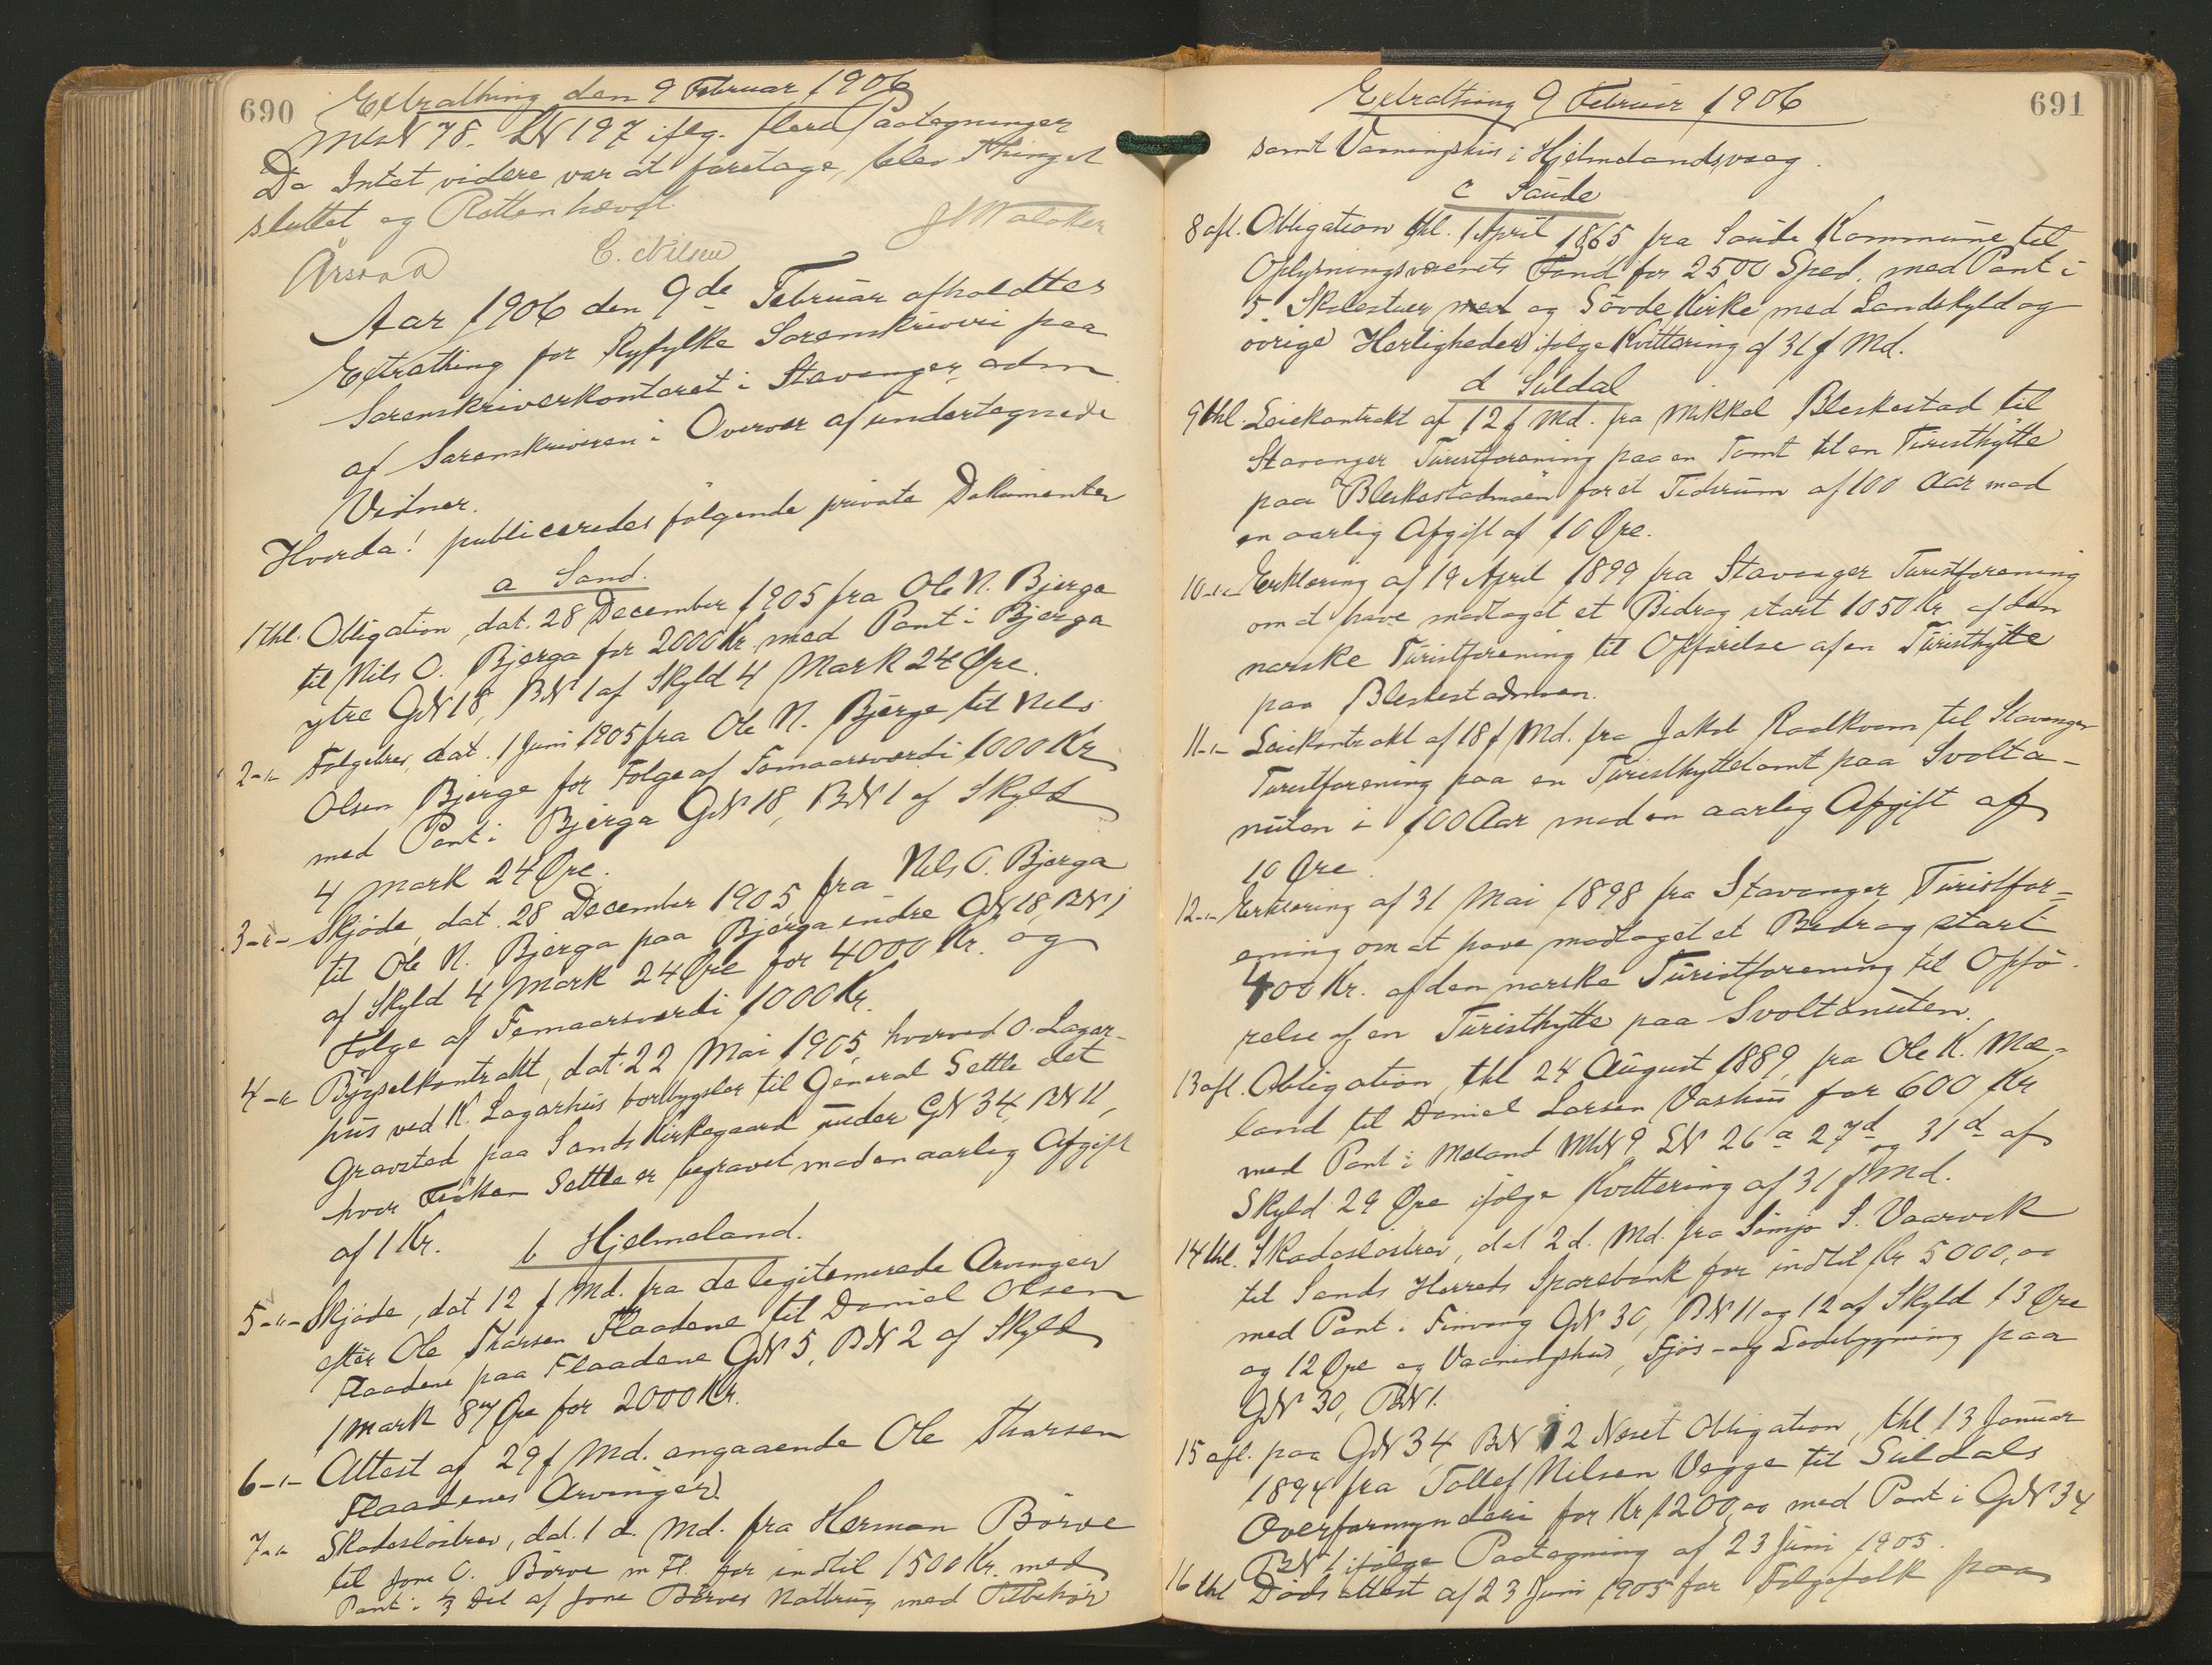 690
Extrathing den 9 Februar 1906
MtsN 78. LN 197 iflg. flere Paategninger
Da Intet videre var at foretage, blev Thinget
sluttet og Retten hævet.
C. Nilsen
Aar 1906 den 9de Februar afholdtes
Extrathing for Ryfylke Sorenskriveri paa
Sorenskriverkontoret i Stavanger, adm
af Sorenskriveren i Overvær af undertegnede
Vidner.
Hvorda! publiceredes følgende private Dokumenter
a Sand.
1 thl. Obligation, dat. 28 December 1905 fra Ole N. Bjerga
til Nils O. Bjerga for 2000 Kr. med Pant i Bjerga
ytre GN 18, BN 1 af Skyld 4 Mark 24 Øre.
2 -"- Følgebrev, dat. 1 Juni 1905 fra Ole N. Bjerge til Nils
Olsen Bjerge for Følge af Femaarsværdi 1000 Kr
med Pant i Bjerga GN 18, BN 1 af Skyld
4 Mark 24 Øre.
3 -"- Skjøde, dat. 28 December 1905 fra Nils O. Bjerga
til Ole N. Bjerga paa Bjerga indre GN 18, BN 1
af Skyld 4 Mark 24 Øre for 4000 Kr. og
Følge af Femaarsværdi 1000 Kr.
4 -"- Bygselkontrakt, dat. 22 Mai 1905, hvorved O. Lagar-
hus ved K. Lagarhus bortbygsler til General Settle det
Gravsted paa Sands Kirkegaard under GN 34, BN 11,
hvor Frøken Settle er begravet, mod en aarlig Afgift
af 1 Kr.
b Hjelmeland.
5 -"- Skjøde, dat 12 f. Md. fra de legitimerede Arvinger
efter Ole Tharsen Flaadene til Daniel Olsen
Flaadene paa Flaadene GN 5, BN 2 af Skyld
1 Mark 87 Øre for 2000 Kr.
6 -"- Attest af 29 f Md. angaaende Ole Tharsen
Flaadenes Arvinger.
7 -"- Skadesløsbrev, dat. 1 d. Md. fra Herman Börve
til Jone O. Börve m. Fl. for indtil 1500 Kr. med
Pant i 1/3 Del af Jone Börves Notbrug med Tilbehør
691
Extrathing 9 Februar 1906
samt Vaaningshus i Hjelmelandsvaag.
c Saude
8 afl. Obligation thl. 1 April 1865 fra Saude Kommune til
Oplysningsvæsenets Fond for 2500 Sped. med Pant i
5 Skolestuer med og Søvde Kirke med Landskyld og
øvrige Herligheder ifølge Kvittering af 31 f Md.
d Suldal
9 thl. Leiekontrakt af 12 f Md. fra Mikkel Bleskestad til
Stavanger Turistforening paa en Tomt til en Turisthytte
paa Bleskestadmoen for et Tidsrum af 100 Aar mod
en aarlig Afgift af 10 Øre.
10 -"- Erklæring af 19 April 1899 fra Stavanger Turistforening
om at have modtaget et Bidrag stort 1050 Kr. af den
norske Turistforening til Opførelse af en Turisthytte
paa Bleskestadmoen.
11 -"- Leiekontrakt af 18 f Md. fra Jakob Roalkvam til Stavanger
Turistforening paa en Turisthyttetomt paa Svolta-
nuten i 100 Aar mod en aarlig Afgift af
10 Øre.
12 -"- Erklæring af 31 Mai 1898 fra Stavanger Turistfor-
ening om at have modtaget et Bidrag stort
400 Kr. af den norske Turistforening til Opfø-
relse af en Turisthytte paa Svoltanuten.
13 afl. Obligation, thl 24 August 1889, fra Ole K. Mæ-
land til Daniel Larsen Vashus for 600 Kr
med Pant i Mæland MtN 9 LN 26a 27d og 31d af
Skyld 29 Øre ifølge Kvittering af 31 f Md.
14 thl. Skadesløsbrev, dat 2 d. Md. fra Simjo S. Vaarvik
til Sands Herreds Sparebank for indtil Kr 5000,00
med Pant i Finvang GN 30, BN 11 og 12 af Skyld 13 Øre
og 12 Øre og Vaaningshus, Fjøs- og Ladebygning paa
GN 30, BN 1.
15 afl. paa GN 34 BN 12 Næset Obligation, thl 13 Januar
1894 fra Tollef Nilsen Vegge til Suldals
Overformynderi for Kr 1200,00 med Pant i GN 34
BN 1 ifølge Paategning af 23 Juni 1905.
16 thl Dødsattest af 23 Juni 1905 for Følgefolk paa